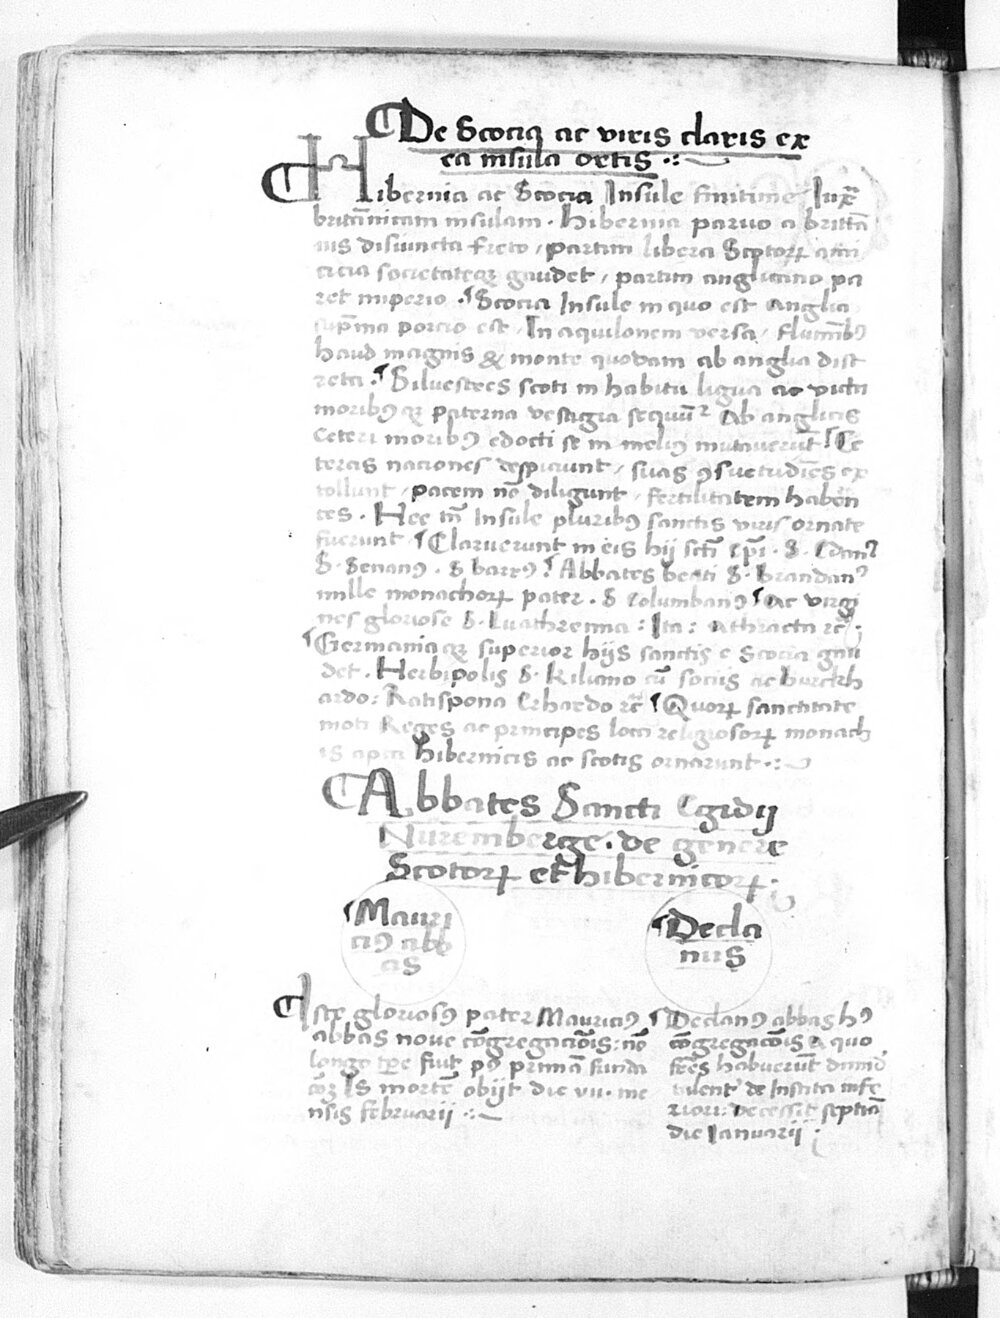 De Scocia ac viris claris ex
ea insula ortis
Hibernia ac Scocia Insule finitime Iuxͣ
britānicam insulam. Hibernia paruo a brittā
nis disiuncta freto, partim libera Scotoꝝ ami
cicia societateqꝫ gaudet, partim anglicano pa
ret imperio. Scocia Insule in quo est anglia
sup̄ma porcio est, In aquilonem versa, fluminibꝰ
haud magnis & monte quodam ab anglia dist
reta. Siluestres scoti in habitu ligua ac victu
moribꝰ qꝫ paterna vestigia sequūtʳ Ab anglicis
Ceteri moribꝰ edocti se in meliꝰ mutauerūt Ce
teras naciones despiciunt, suas ꝯsuetudīes ex
tollunt, pacem nō diligunt, fertilitatem haben
tes. Hec tn̄ Insule pluribꝰ sanctis viris ornate
fuerunt. Claruerunt in eis hij scti Ep̄i. S. Edanꝰ
S. Senanꝰ. S barrꝰ Abbates beati S. Brandanꝰ
mille monachoꝝ pater. S Columbanꝰ Ac virgi
nes gloriose S. Luathrenna: Ita: Athracta ꝛc̄
Germania qꝫ superior hijs sanctis e Scocia gau
det. Herbipolis S. Kiliano cū sociis ac burckh
ardo: Ratispona Erhardo ꝛc̄ Quoꝝ sanctitate
moti Reges ac principes loca religiosoꝝ monach
is apta hibernicis ac scotis ornarunt.
Abbates Sancti Egidij
Nurembergē. de genere
Scotoꝝ et hibernicoꝝ.
Mauri
ciꝰ abb
as
Decla
nus
Iste gloriosꝰ pater Mauriciꝰ
abbas noue cōgregacōis: nō
longo tꝑe fuit pꝰ primā funda
cōꝫ Is mortē obijt die vii. me
nsis februarij
Declanꝰ abbas hꝰ
cōgregacōis A quo
fr̄es habuerūt
de Insula infe
riori: decessit septīa
die Ianuarij